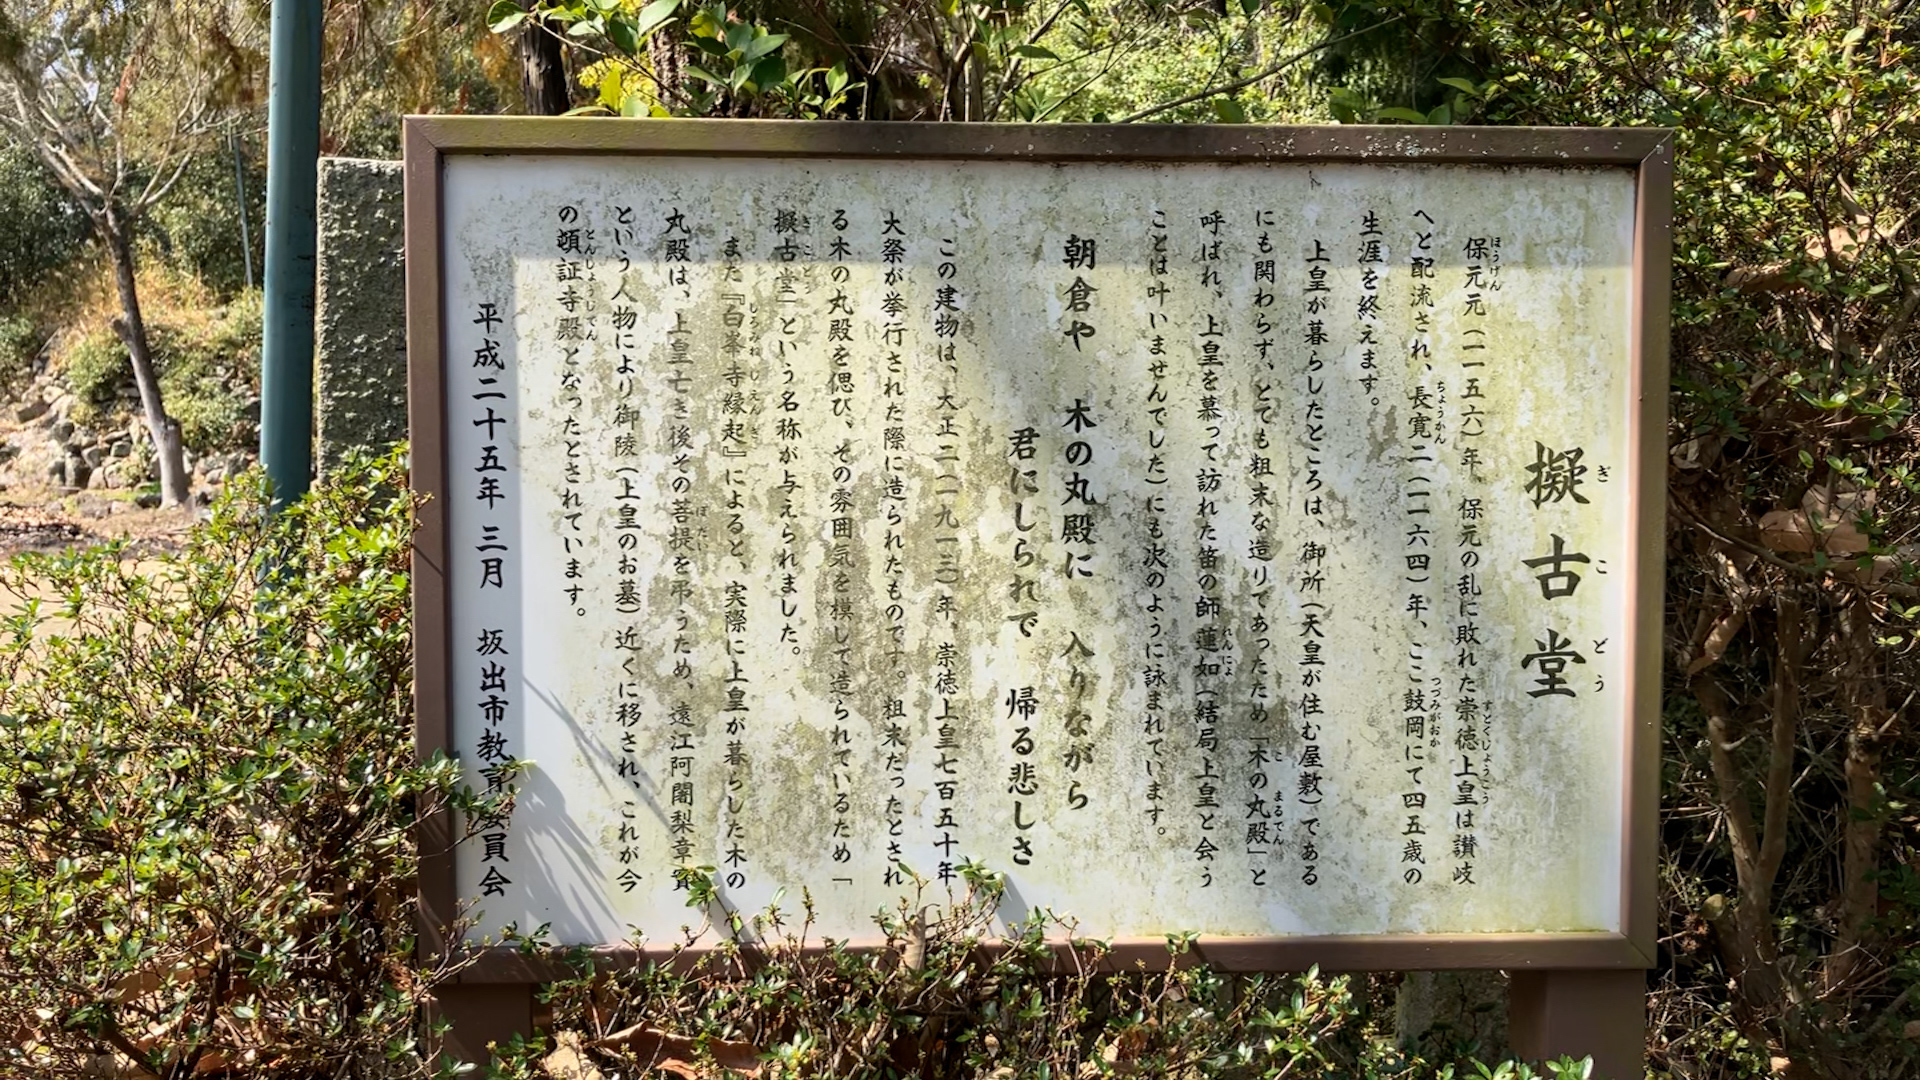 擬古堂
ぎこどう
保元元（一一五六）年、保元の乱に敗れた崇徳上皇は讃岐
ほうげん
すとくじょうこう
へと配流され、長寛二（一一六四）年、ここ鼓岡にて四五歳の
ちょうかん
つづみがおか
生涯を終えます。
上皇が暮らしたところは、御所（天皇が住む屋敷）である
にも関わらず、とても粗末な造りであったため「木の丸殿」と
こ
まるでん
呼ばれ、上皇を慕って訪れた笛の師蓮如（結局上皇と会う
れんにょ
ことは叶いませんでした）にも次のように詠まれています。
朝倉や 木の丸殿に 入りながら
君にしられで 帰る悲しさ
この建物は、大正二（一九一三）年、崇徳上皇七百五十年
大祭が挙行された際に造られたものです。粗末だったとされ
る木の丸殿を偲び、その雰囲気を模して造られているため「
擬古堂」という名称が与えられました。
ぎこどう
また『白峯寺縁起』によると、実際に上皇が暮らした木の
しろみねじえんぎ
丸殿は、上皇亡き後その菩提を弔うため、遠江阿闍梨章實
ぼだい
という人物により御陵（上皇のお墓）近くに移され、これが今
の頓証寺殿となったとされています。
とんしょうじでん
平成二十五年 三月 坂出市教育委員会